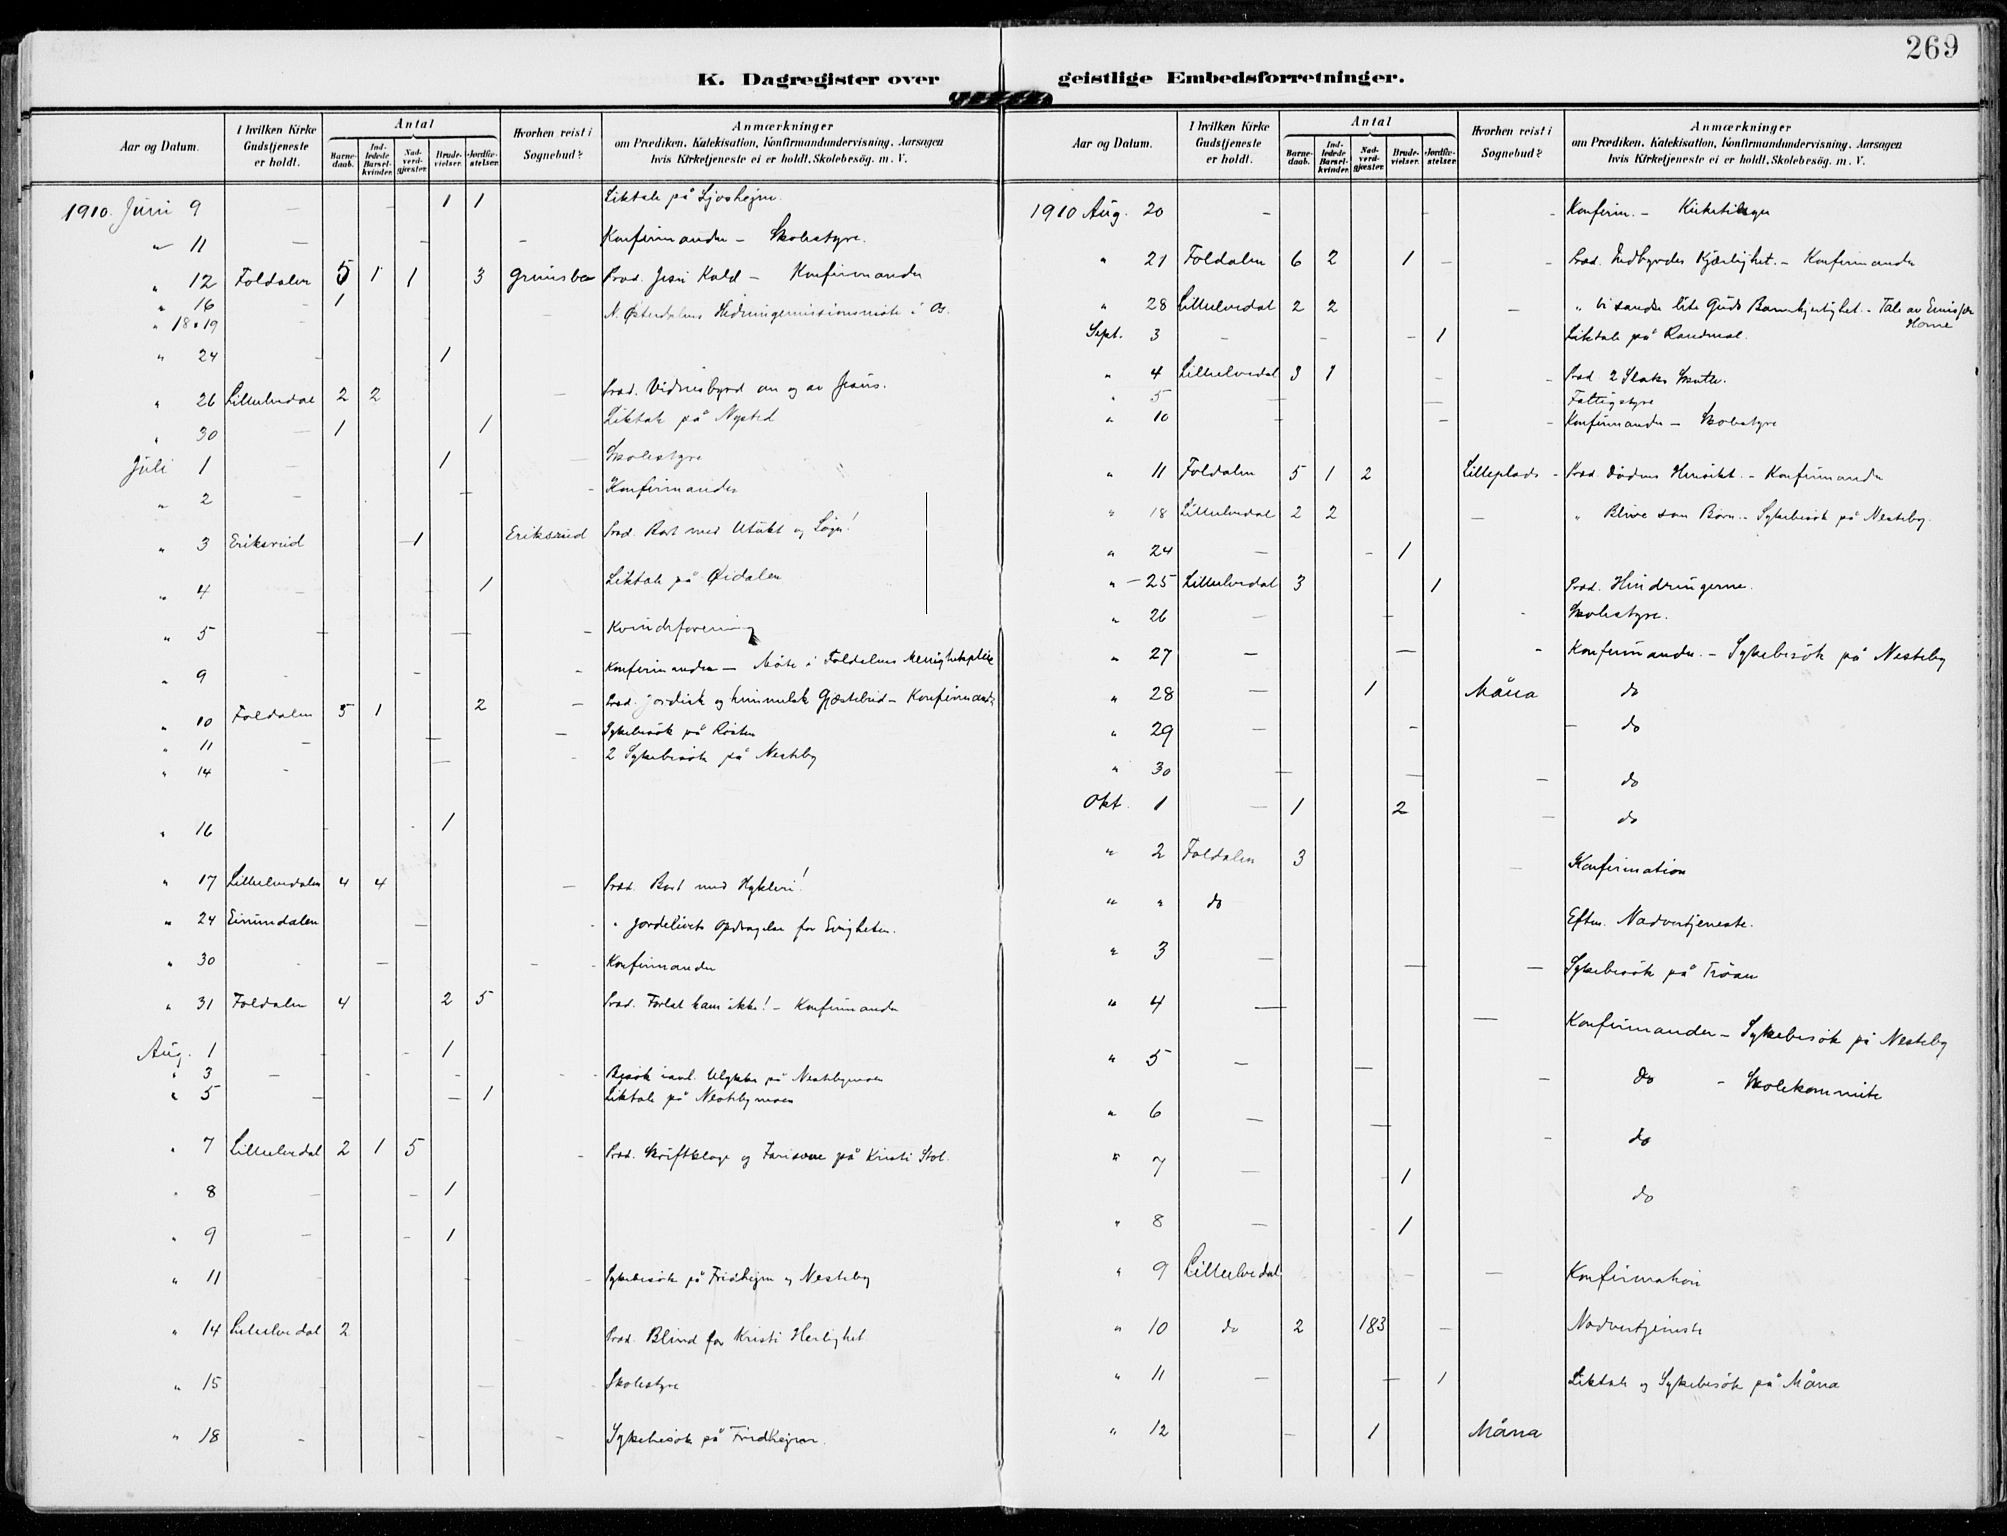 269
K. Dagregister over geistlige Embedsforretninger.
Aar og Datum. | I hvilken Kirke Gudstjeneste er holdt. | Antal | Barnedaab. | Indledede Barselkvinder. | Nadverdgjæster. | Brudevielser. | Jordfæstelser. | Hvorhen reist i Sognebud? | Anmærkninger om Prædiken, Katekisation, Konfirmandundervisning, Aarsagen hvis Kirketjeneste ei er holdt, Skolebesög. m. V.
1910. Juni 9 – – 1 1 Liktale på Ljosheim.
" 11 – – – Konfirmander – Skolestyre.
" 12 Foldalen 5 1 1 3 Grimsbu Præd. Jesu Kald – Konfirmander
" 16 1
" 18 o 19 – N. Østerdalens Hedningemissionsmøte i
" 24 – 1
" 26 Lilleelvedal 2 2 – Præd. Vidnesbyrd om og av Jesus.
" 30 – 1 1 Liktale på Nysted
Juli 1 – 1 – Skolestyre
" 2 – – Konfirmander
" 3 Eriksrud 1 Eriksrud Præd. Bort med Utukt og Løgn!
" 4 – 1 Liktale på Øidalen
" 5 – – – Kvindeforening
" 9 – – – Konfirmander – Møte i Foldalens Menighetspleie
" 10 Foldalen 5 1 2 – Præd. Jordisk og himmelsk Gjæstebud – Konfirmander
" 11 – – – Sykebesök på Røsten
" 14 – – – 2 Sykebesök på Nesteby
" 16 – – 1
" 17 Lilleelvedalen 4 4 – Præd. Bort med Hykleri!
" 24 Einundalen – " Jordelivets Opdragelse for Evigheten.
" 30 – – – Konfirmander
" 31 Foldalen 4 2 5 Præd. Forlat ham ikke! – Konfirmander
Aug. 1 – – 1
" 3 – – – – Besök Ulykke på Nestebymoen
" 5 – – 1 Liktale på Nestebymoen
" 7 Lilleelvedal 2 1 5 – Præd. Skriftkloge og Farisæere på Kristi Stol.
" 8 – – 1
" 9 – – 1
" 11 – – – Sykebesök på Fridheim og Nesteby
" 14 Lilleelvedal 2 – Præd. Blind for Kristi Herlighet
" 15 – – Skolestyre
" 18 – – Sykebesök på Fridheim.
Aar og Datum. | I hvilken Kirke Gudstjeneste er holdt. | Antal | Barnedaab. | Indledede Barselkvinder. | Nadverdgjæster. | Brudevielser. | Jordfæstelser. | Hvorhen reist i Sognebud? | Anmærkninger om Prædiken, Katekisation, Konfirmandundervisning, Aarsagen hvis Kirketjeneste ei er holdt, Skolebesög. m. V.
1910 Aug. 20 – – – Konfirm. – Kirketilsyn
" 21 Foldalen 6 2 1 – – Præd. Indbyrdes Kjærlighet. – Konfirmander
" 28 Lilleelvedal 2 2 – " Vi sande Guds Barnekjærlighet. – Tale av Emissær Horne
Sept. 3 – – – 1 Liktale på Randmæl.
" 4 Lilleelvedal 3 1 – – Præd. 2 Slaks Skatte.
" 5 – – Fattigstyre
" 10 – – – Konfirmander – Skolestyre
" 11 Foldalen 5 1 2 Lilleplads – Præd. Dødens Hensikt. – Konfirmander
" 18 Lilleelvedal 2 2 – " Blive som Barn. – Sykebesök på Nesteby.
" 24 – – 1
" – 25 Lilleelvedal 3 1 Præd. Hindringerne.
" 26 – – – Skolestyre.
" 27 – – – Konfirmander. – Sykebesök på Nesteby
" 28 – 1 Måna do
" 29 – – – do
" 30 – – – do
Okt. 1 – 1 2 – do
" 2 Foldalen 3 – Konfirmation
" " do Efterm. Nadvertjeneste.
" 3 – – – Sykebesök på Trøan
" 4 – – Konfirmander – Sykebesök på Nesteby
" 5 – – – do – Skolekommité
" 6 – – do
" 7 – 1 do
" 8 – – 1
" 9 Lilleelvedal – – Konfirmation
" 10 do 2 183 – Nadvertjeneste
" 11 – – 1 Liktale og Sykebesök på Måna
" 12 – 1 Måna